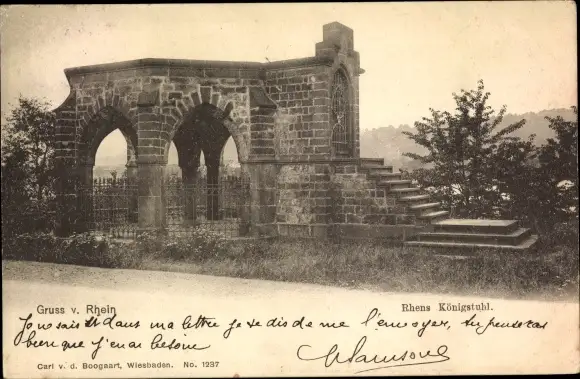 Gruss v. Rhein
Rhens Königstuhl.
Je ne sais si dans ma lettre je te dis de me l'envoyer, tu penseras
bien que j'en ai besoin
Carl v. d. Boogaart, Wiesbaden. No. 1237